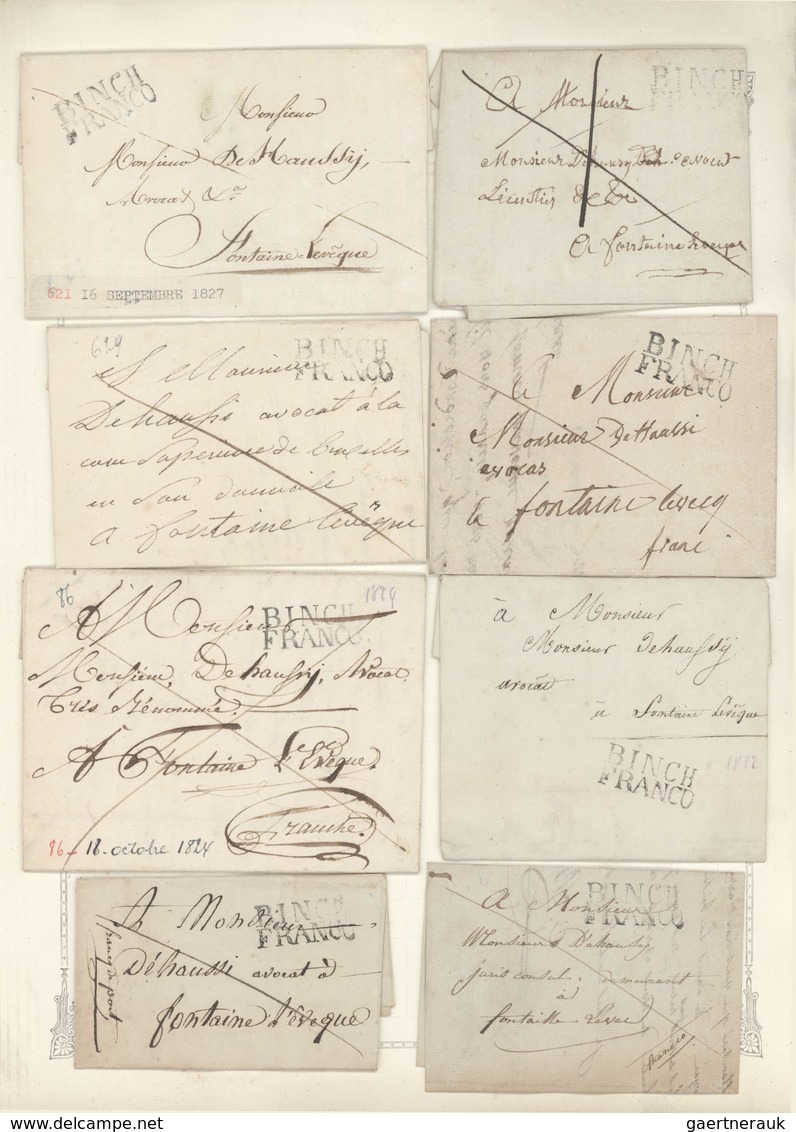 BINCH
FRANCO
Monsieur
Monsieur De Haussy,
Avocat &a
Fontaine-Levêque
621 16 SEPTEMBRE 1827
BINCH
FRANCO
A Monsieur
Monsieur Dehaussy avocat
Licentier &c &c
A fontaine Leveque
629
BINCH
FRANCO
A Monsieur
Dehaussi avocat à la
cour Superieure de Bruxelles
en Son domicile
a fontaine levêque
BINCH
FRANCO
a Monsieur
Monsieur DeHaussi
avocas
à fontaine levecq
franc
86
1824
BINCH
FRANCO
A Monsieur
Monsieur, Dehaussy, Avocat
Très Rénommé.
A Fontaine L'Evêque.
Franche.
86 - 18 - octobre 1824
à Monsieur
Monsieur Dehaussy
avocat
à Fontaine Levêque
BINCH
FRANCO
1812
BINCH
FRANCO
A Monsieur
Déhaussi avocat à
fontaine L'évêque
francq de port
BINCH
FRANCO
A Monsieur
Monsieur Dehaussy
juris consul. demeurant
à
fontaine Levec
franco
delcampe.net
gaertnerauk